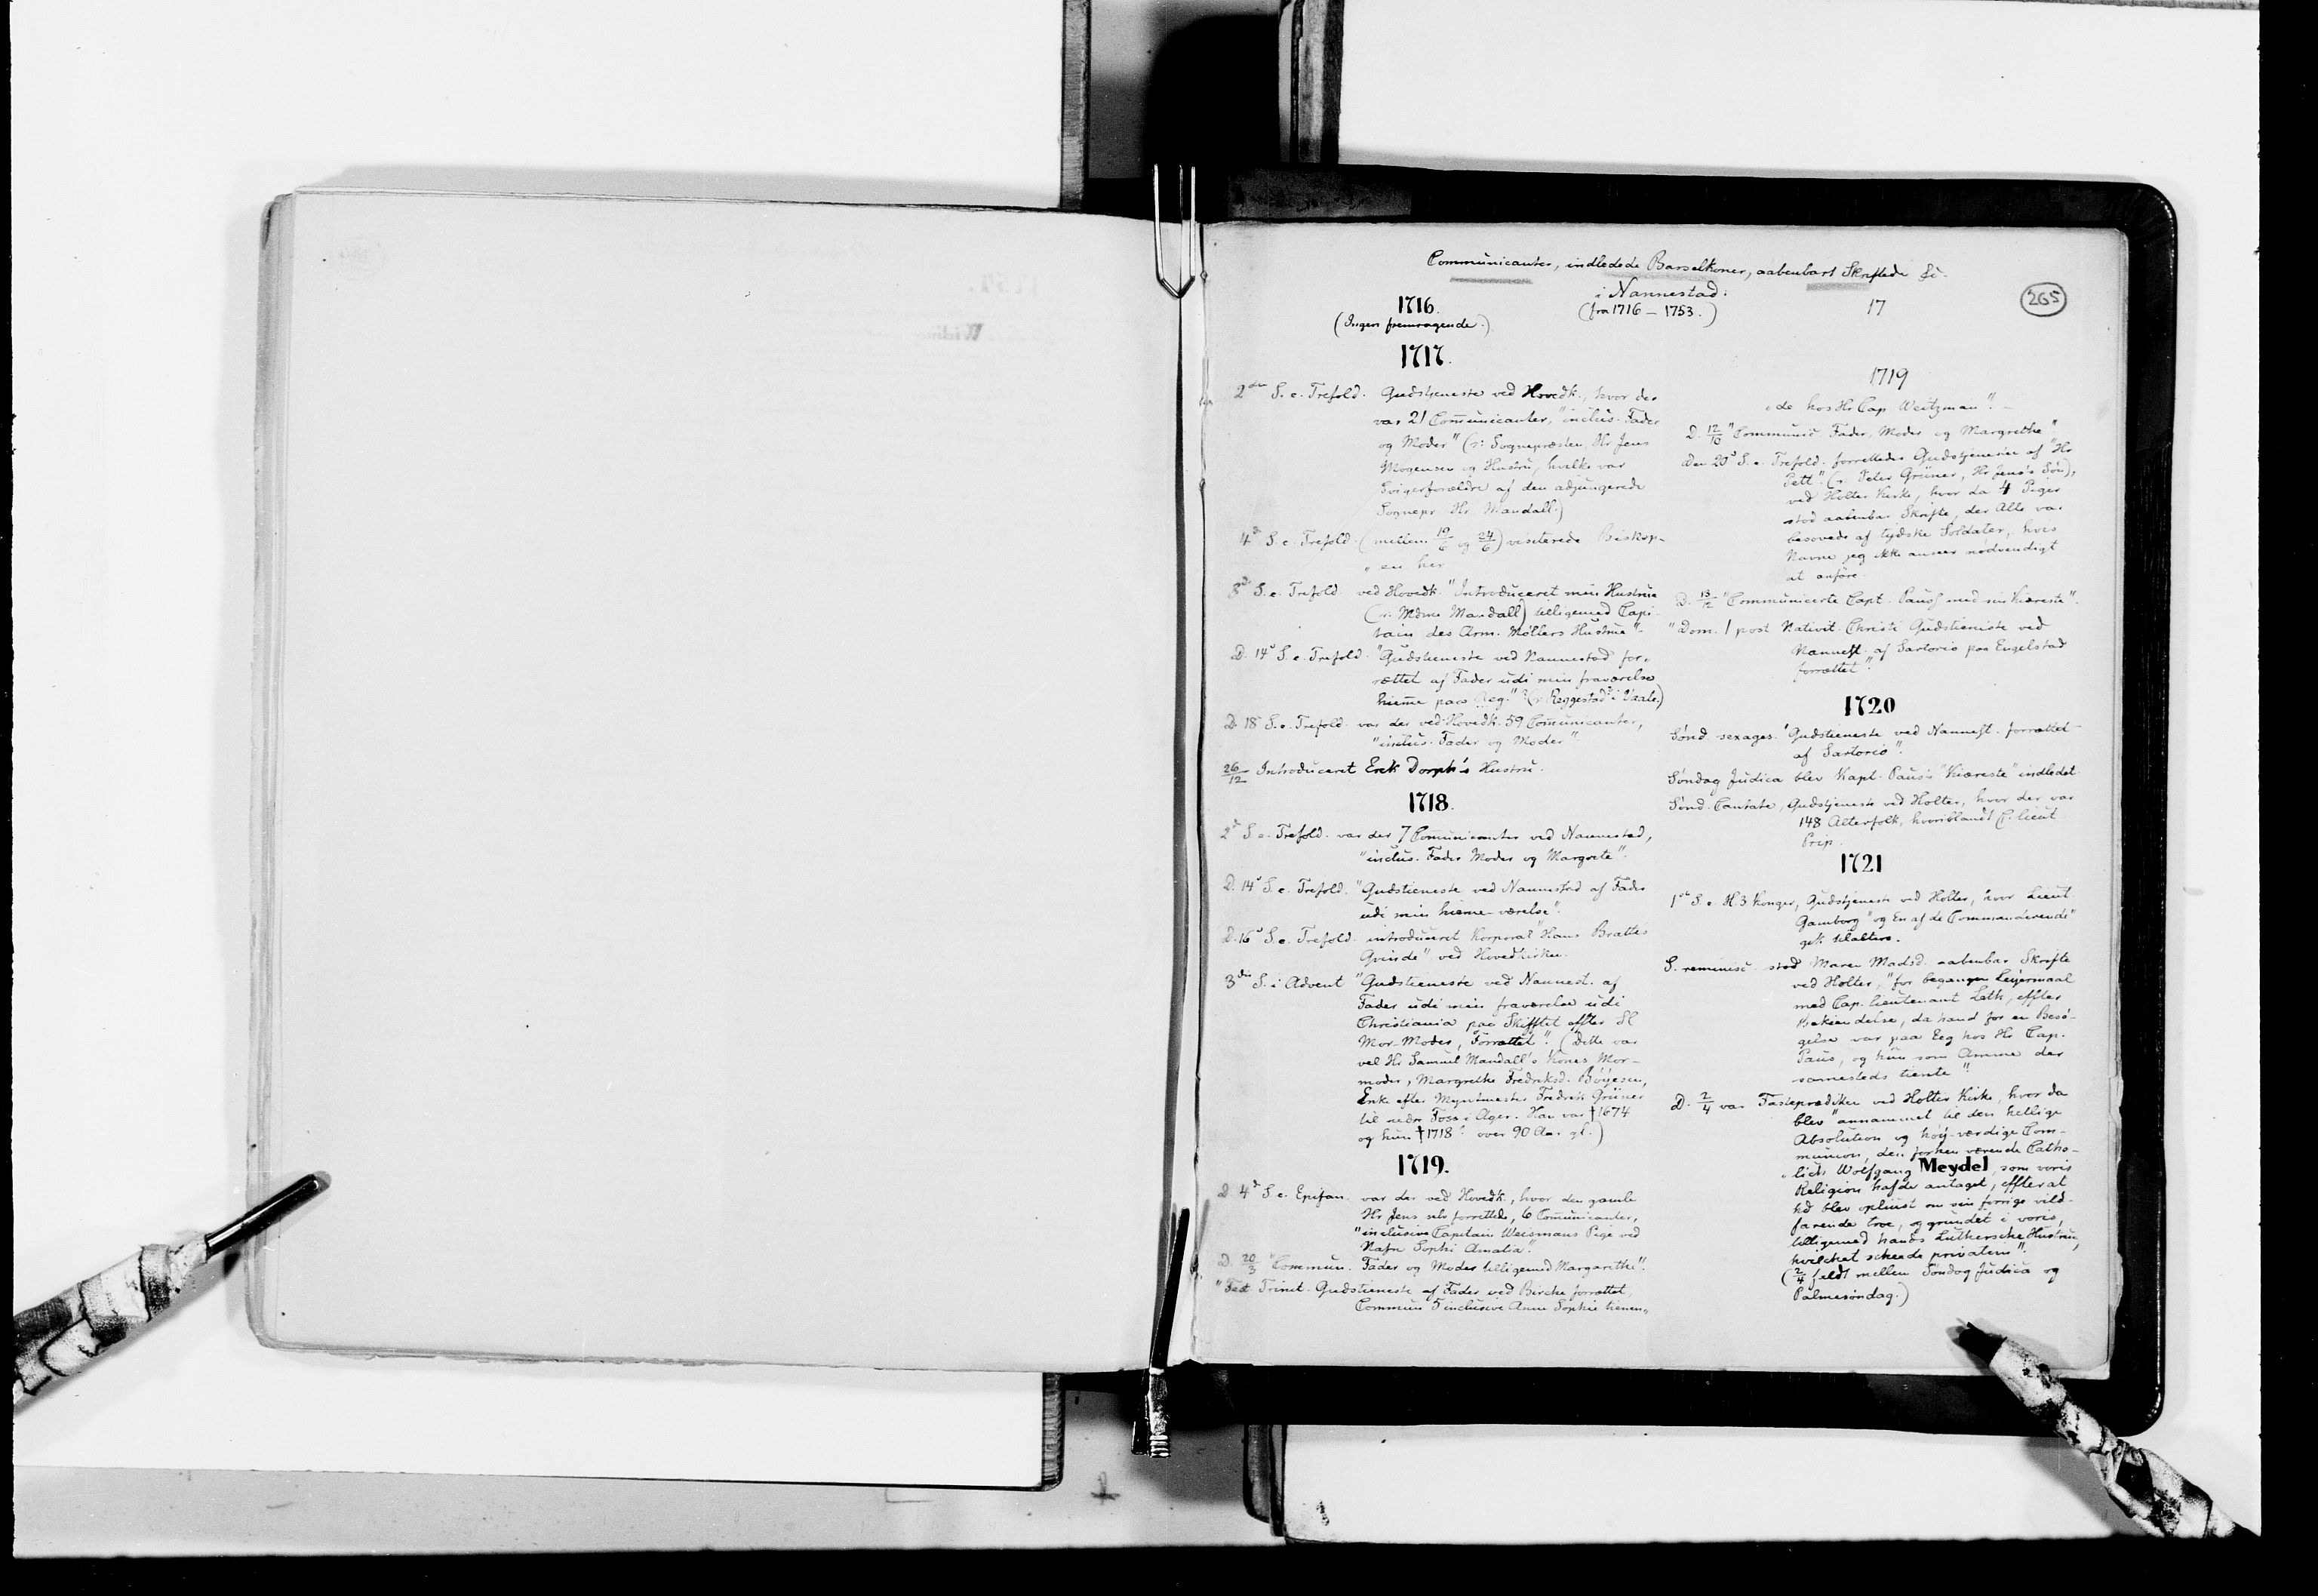 Communicanter, indledede Barselkoner, aabenbart Skriftede &c.
i Nannestad:
(fra 1716 – 1753.)
17
265
1716.
(Ingen fremragende.)
1717.
2den S. e. Trefold. Gudstjeneste ved Hovedk., hvor der
var 21 Com̅unicanter, "inclus. Fader
og Moder" (ɔ: Sognepræsten, Hr Jens
Mogensen og Hustru, hvilke var
Svigerforældre af den adjungerede
Sognepr. Hr Mandall.)
4d S. e. Trefold. (mellem 19/6 og 24/6) visiterede Biskop-
en her
8d S. e. Trefold. ved Hovedk. "Introduceret min Hustrue
(ɔ: Mdme Mandall) tilligemed Capi-
tain des Arm. Møllers Hustrue".
D. 14d S. e. Trefold. "Gudstieneste ved Nannestad for-
rettet af Fader udi min fraværelse
hiem̅e paa Reg." (ɔ: Reggestad i Vaale.)
D. 18d S. e. Trefold. var der ved Hovedk. 59 Com̅unicanter,
"inclus. Fader og Moder".
26/12 Introduceret Erik Dorph's Hustru.
1718.
2d S. e. Trefold. var der 7 Com̅unicanter ved Nannestad,
"inclus. Fader Moder og Margrete".
D. 14d S. e. Trefold. "Gudstieneste ved Nannestad af Fader
udi min hieme-værelse".
D. 16d S. e. Trefold. introduceret Korporal "Hans Brattes
Qvinde", ved Hovedkirken.
3die S. i Advent "Gudstieneste ved Nannest. af
Fader udi min fraværelse udi
Christiania paa Skifftet effter Sl
Mor-Moder, Forrættet". (Dette var
vel Hr Samuel Mandall's Kones Mor-
moder, Margrethe Fredriksd. Bøyesen,
Enke efter Myntmester Fredrik Grüner
til nedre Foss i Ager. Han var †1674
og hun †1718? over 90 Aar gl.)
1719.
D. 4d S. e. Epifan. var der ved Hovedk., hvor den gamle
Hr Jens selv forrettede, 6 Com̅unicanter,
"inclusive Capitain Weismans Pige ved
Nafn Sophi Amalia".
D. 20/3 "Commun. Fader og Moder tilligemed Margarethe".
"Fest Trinit. Gudstieneste af Fader ved Bircke forrættet,
Commun 5 inclusive Anne Sophie tienen-
1719
de hos Hr Cap Weitzman".
D. 12/10 "Communic. Fader, Moder og Margrethe".
Den 20d S. e. Trefold. forrettedes Gudstjenesten af "Hr
Pett". (ɔ: Peter Grüner, Hr Jens's Søn),
ved Holter Kirke, hvor da 4 Piger
stod aabenbar Skrifte, der Alle var
besovede af tydske Soldater, hvis
Navne jeg ikke anseer nødvendigt
at anføre.
D. 13/12 "Communicerte Capt. Paus med sin Kiæreste".
"Dom. 1 post Nativit. Christi Gudstieniste ved
Nannest. af Sartorio paa Engelstad
forrættet".
1720
Sønd. sexages. "Gudstieneste ved Nannest. forrættet
af Sartorio".
Søndag Judica blev Kapt. Paus's "Kiæreste" indledet.
Sønd. Cantate, Gudstjeneste ved Holter, hvor der var
148 Alterfolk, hvoriblandt C. lieut.
Prip.
1721
1ste S. e. H. 3 Konger, Gudstjeneste ved Holter, hvor Lieut
Gamborg "og En af de Commanderende"
gik tilalters.
S. reminisc. stod Maren Madsd. aabenbar Skrifte
ved Holter, "for begangen Leyermaal
med Cap. lieutenant Leth, effter
Bekiendelse, da hand for en Besø-
gelse var paa Eeg hos Hr Cap.
Paus, og hun som Amme der
sammesteds tiente".
D. 2/4 var Fasteprædiken ved Holter Kirke, hvor da
blev "annammet til den hellige
Absolution og høy-værdige Com-
munion, den forhen værende Catho-
lich Wolfgang Meydel, som voris
Religion hafde antaget, effterat
hd blev oplyust om sin forrige vild-
farende troe, og grundet i voris,
tilligemed hands Lutherske Hustru,
hvilchet scheede privatim".
(2/4 faldt mellem Søndag Judica og
Palmesøndag.)